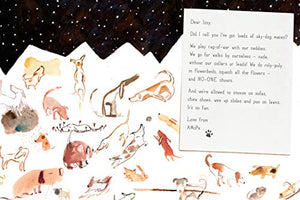 Dear Issy,
Did I tell you I've got loads of sky-dog mates?
We play tug-of-war with our teddies.
We go for walks by ourselves – nude,
without our collars or leads! We do roly-poly
in flowerbeds, squash all the flowers –
and NO-ONE shouts.
And we're allowed to snooze on sofas,
chew shoes, wee up slides and poo on lawns.
It's so fun.
Love from